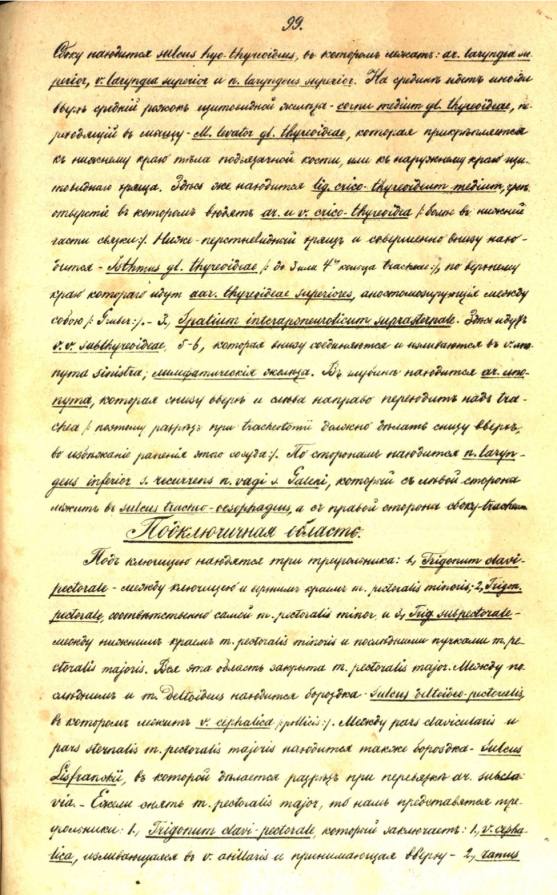 99.
Сбоку находится sulcus hyo-thyreoideus, въ которомъ лежатъ: ar. laryngea su-
perior, v. laryngea superior и n. laryngeus superior. На срединѣ идетъ иногда
вверхъ средній рожокъ щитовидной железы - cornu medium gl. thyreoideae, пе-
реходящій въ мышцу - M. levator gl. thyreoideae, которая прикрѣпляется
къ нижнему краю тѣла подъязычной кости, или къ наружному краю щи-
товиднаго хряща. Здѣсь же находится lig. crico-thyreoideum medium, чрезъ
отверстіе въ которомъ входятъ ar. и v. crico-thyreoidea /: болѣе въ нижней
части связки :/. Ниже - перстневидный хрящъ и совершенно внизу нахо-
дится - Isthmus gl. thyreoideae /: до 3 или 4го кольца tracheae :/, по верхнему
краю котораго идутъ aar. thyreoideae superiores, анастомозирующія между
собою /: Gruber :/. - 3, Spatium interaponeuroticum suprasternale. Здѣсь идутъ
v.v. subthyreoideae, 5-6, которая внизу соединяются и изливаются въ v. ano-
nyma sinistra; лимфатическія железы. Въ глубинѣ находится ar. ano-
nyma, которая снизу вверхъ и слѣва направо переходитъ надъ tra-
chea /: поэтому разрѣзъ при tracheotomii должно дѣлать снизу вверхъ,
во избѣжаніе раненія этого сосуда :/. По сторонамъ находится n. laryn-
geus inferior s. recurrens n. vagi s. Galeni, который съ лѣвой стороны
лежитъ въ sulcus tracheo-oesophageus, а съ правой стороны сбоку tracheae.
Подключичная область.
Подъ ключицею находятся три треугольника: 1, Trigonum clavi-
pectorale - между ключицею и верхнимъ краемъ m. pectoralis minoris; 2, Trigon.
pectorale, соотвѣтственно самой m. pectoralis minor и 3, Trig. subpectorale -
между нижнимъ краемъ m. pectoralis minoris и послѣдними пучками m. pe-
ctoralis majoris. Вся эта область закрыта m. pectoralis major. Между по-
слѣднимъ и m. Deltoideus находится бороздка - Sulcus deltoideo-pectoralis,
въ которомъ лежитъ v. cephalica /: pollicis :/. Между pars clavicularis и
pars sternalis m. pectoralis majoris находится также бороздка - Sulcus
Lisfrankii, въ которой дѣлается разрѣзъ при перевязкѣ ar. subcla-
via. - Ежели снять m. pectoralis major, то намъ представятся тре-
угольники: 1, Trigonum clavi-pectorale, который заключаетъ: 1, v. cepha-
lica, изливающаяся въ v. axillaris и принимающая вверху - 2, ramus